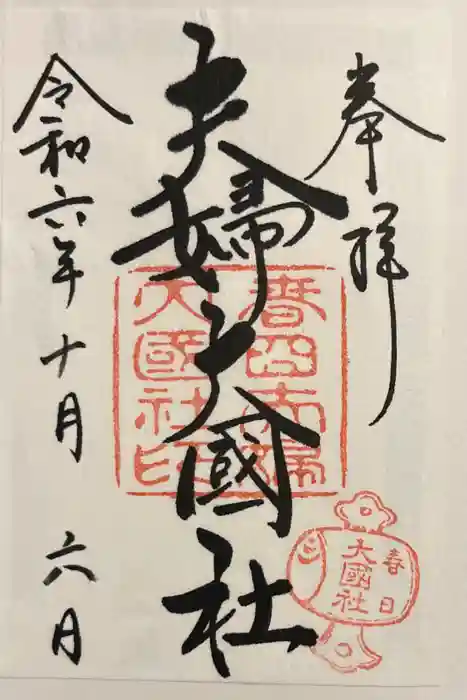 奉拝
夫婦大國社
春日夫婦
大國社印
春日
大國社
令和六年十月 六日